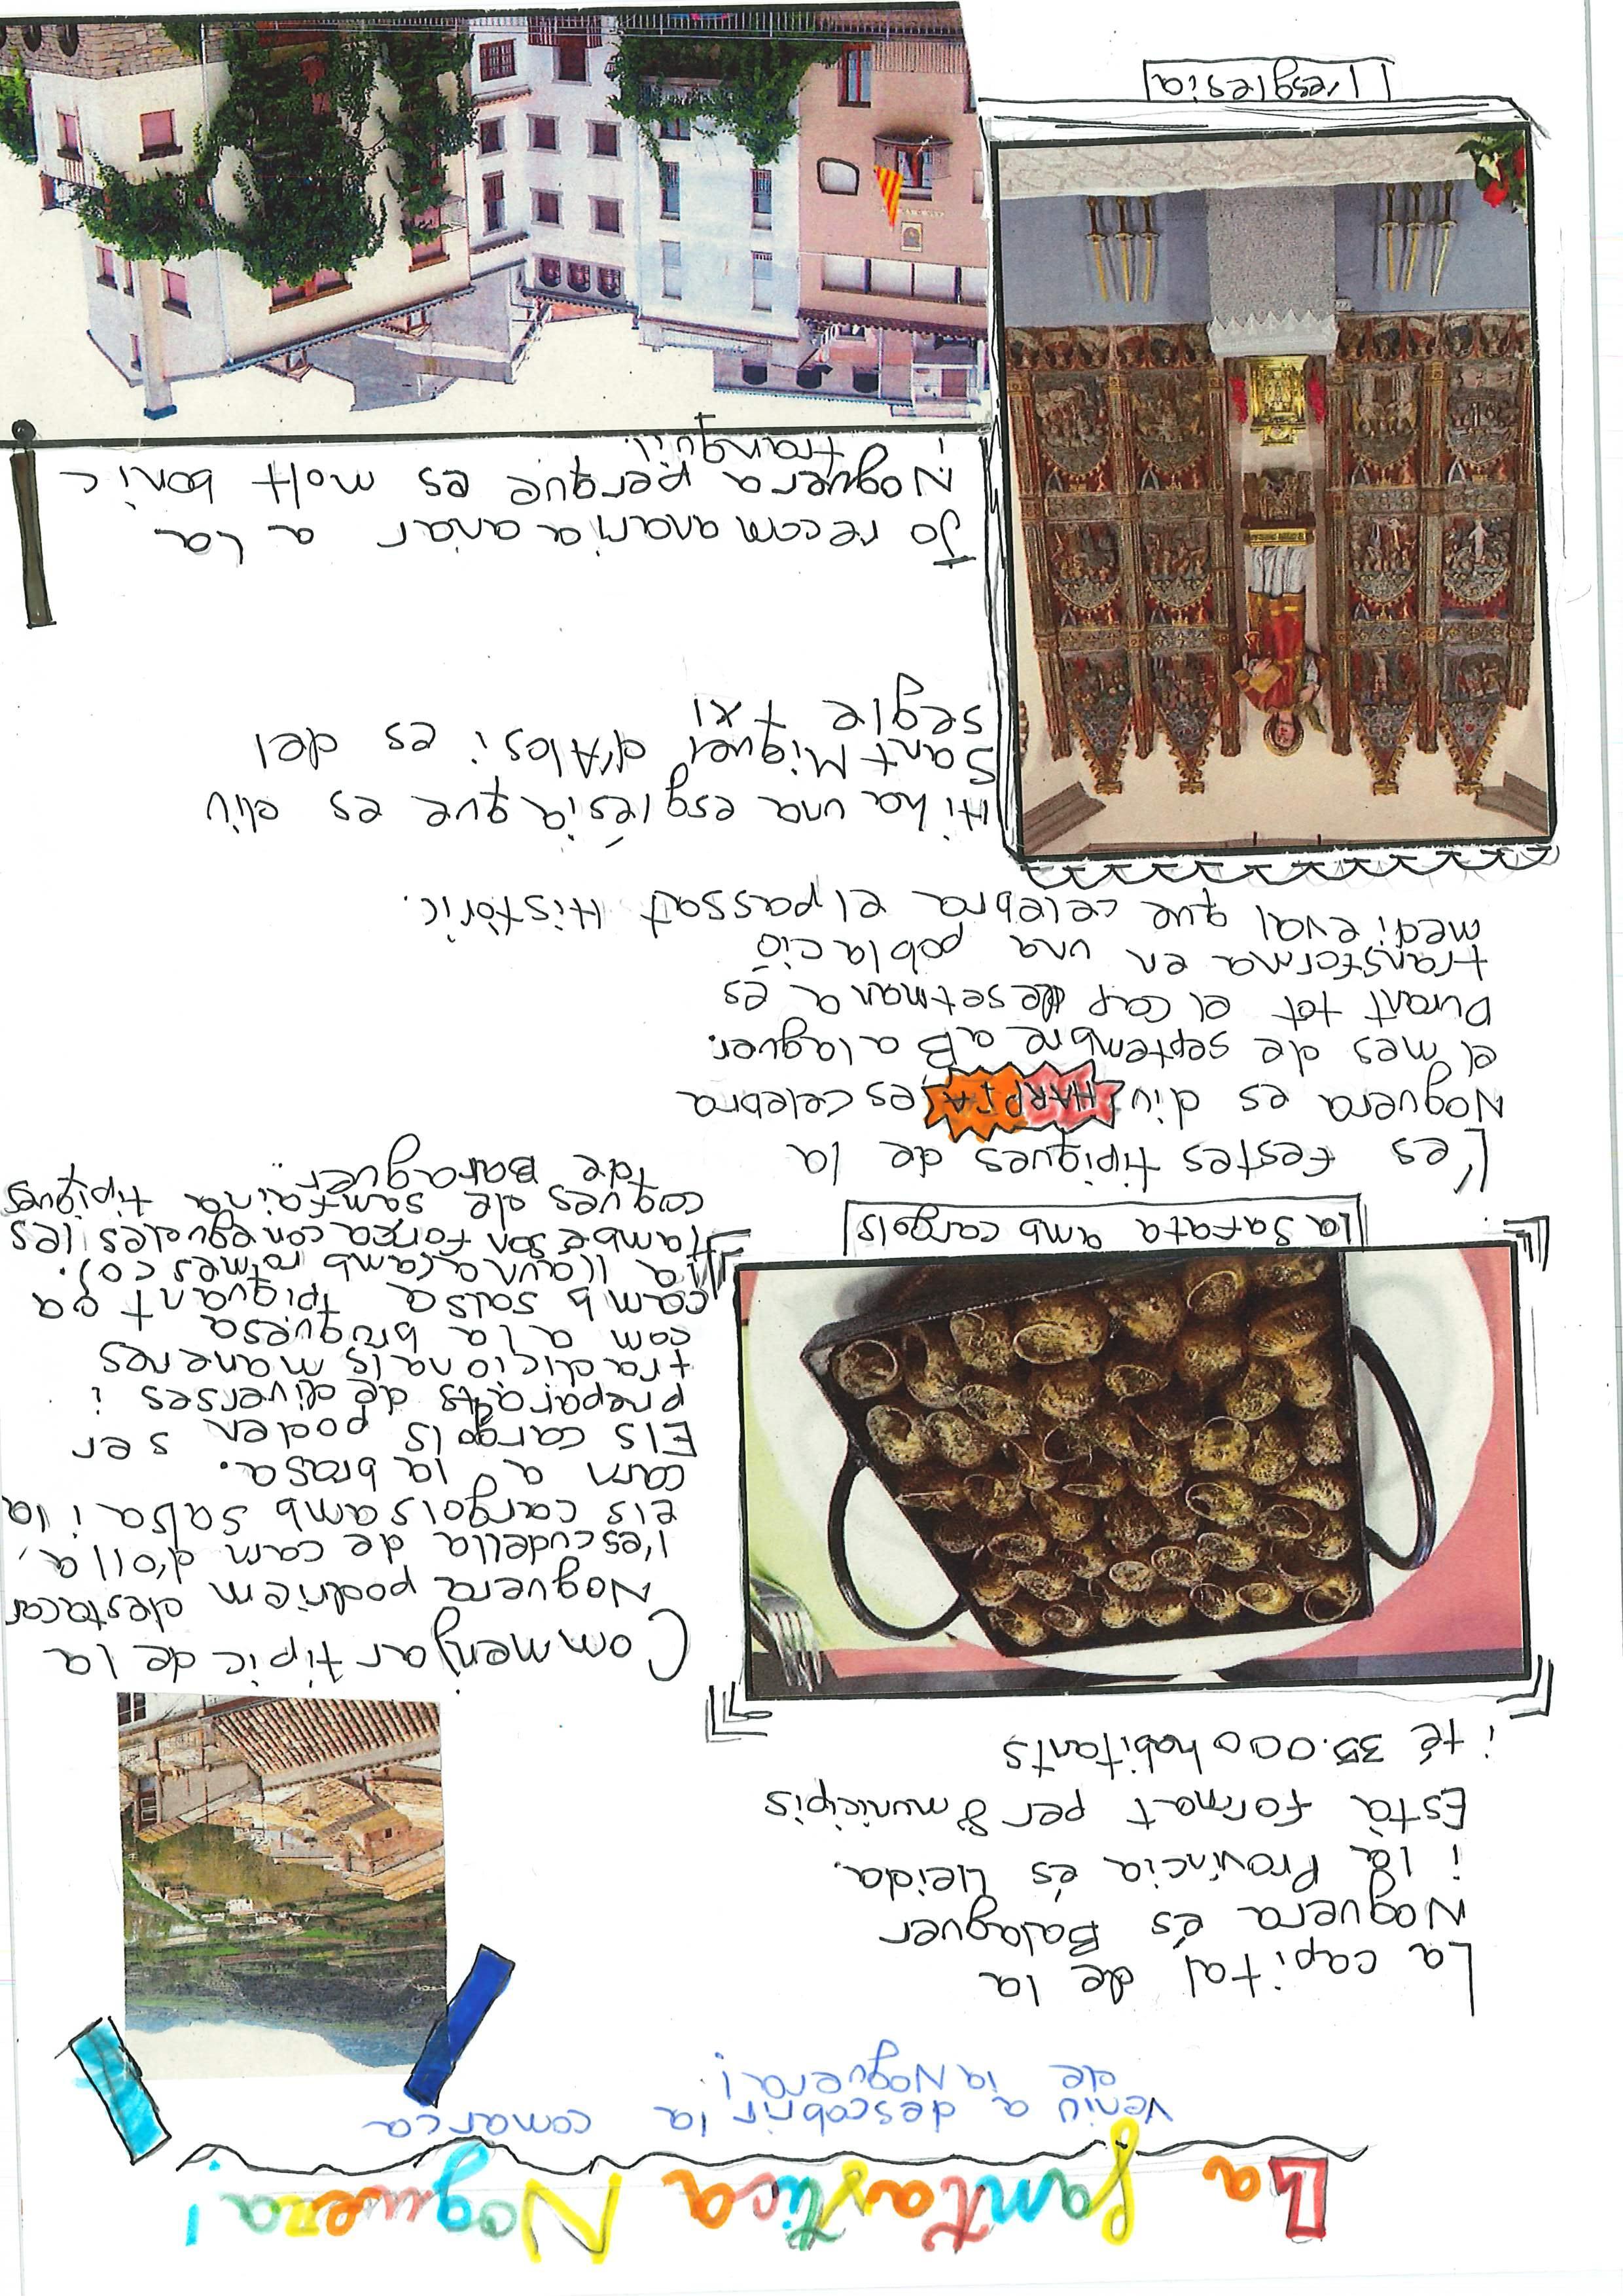 La fantastica Noguera!
Veniu a descobrir la comarca
de la Noguera!
La capital de la
Noguera és Balaguer
i la Província és Lleida.
Està format per 8 municipis
i té 35.000 habitants
Com menjar tipic de la
Noguera podriem destacar
l'escudella de carn d'olla,
els cargols amb salsa i la
carn a la brasa.
Els cargols poden ser
preparats de diverses i
tradicionals maneres
com a la bruquesa
camb salsa piquant oa
la llauna (amb romesco).
També son força conegudes les
coques de samfaina tipiques
de Baraguer.
La Safata amb cargols
L'es festes tipiques de la
Noguera es diu: HARPIA es celebra
el mes de septembre a Balaguer.
Durant tot el cap de setmana és
transforma en una població
medieval que celebra el passat Històric.
Hi ha una església que es diu
Sant Miquel d'Alos i es del
segle txI
Jo recomanaria anar a La
Noguera perque es molt bonic
i tranquil.
L'esglesia